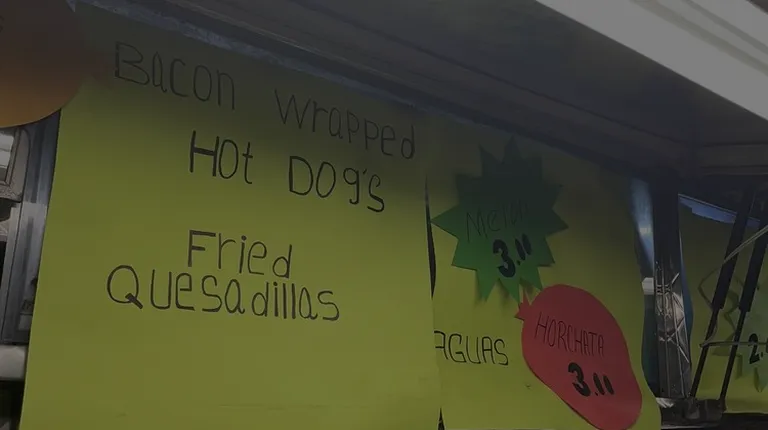 Bacon Wrapped
Hot Dog's
Fried
Quesadillas
MELON
3.11
AGUAS
HORCHATA
3.11